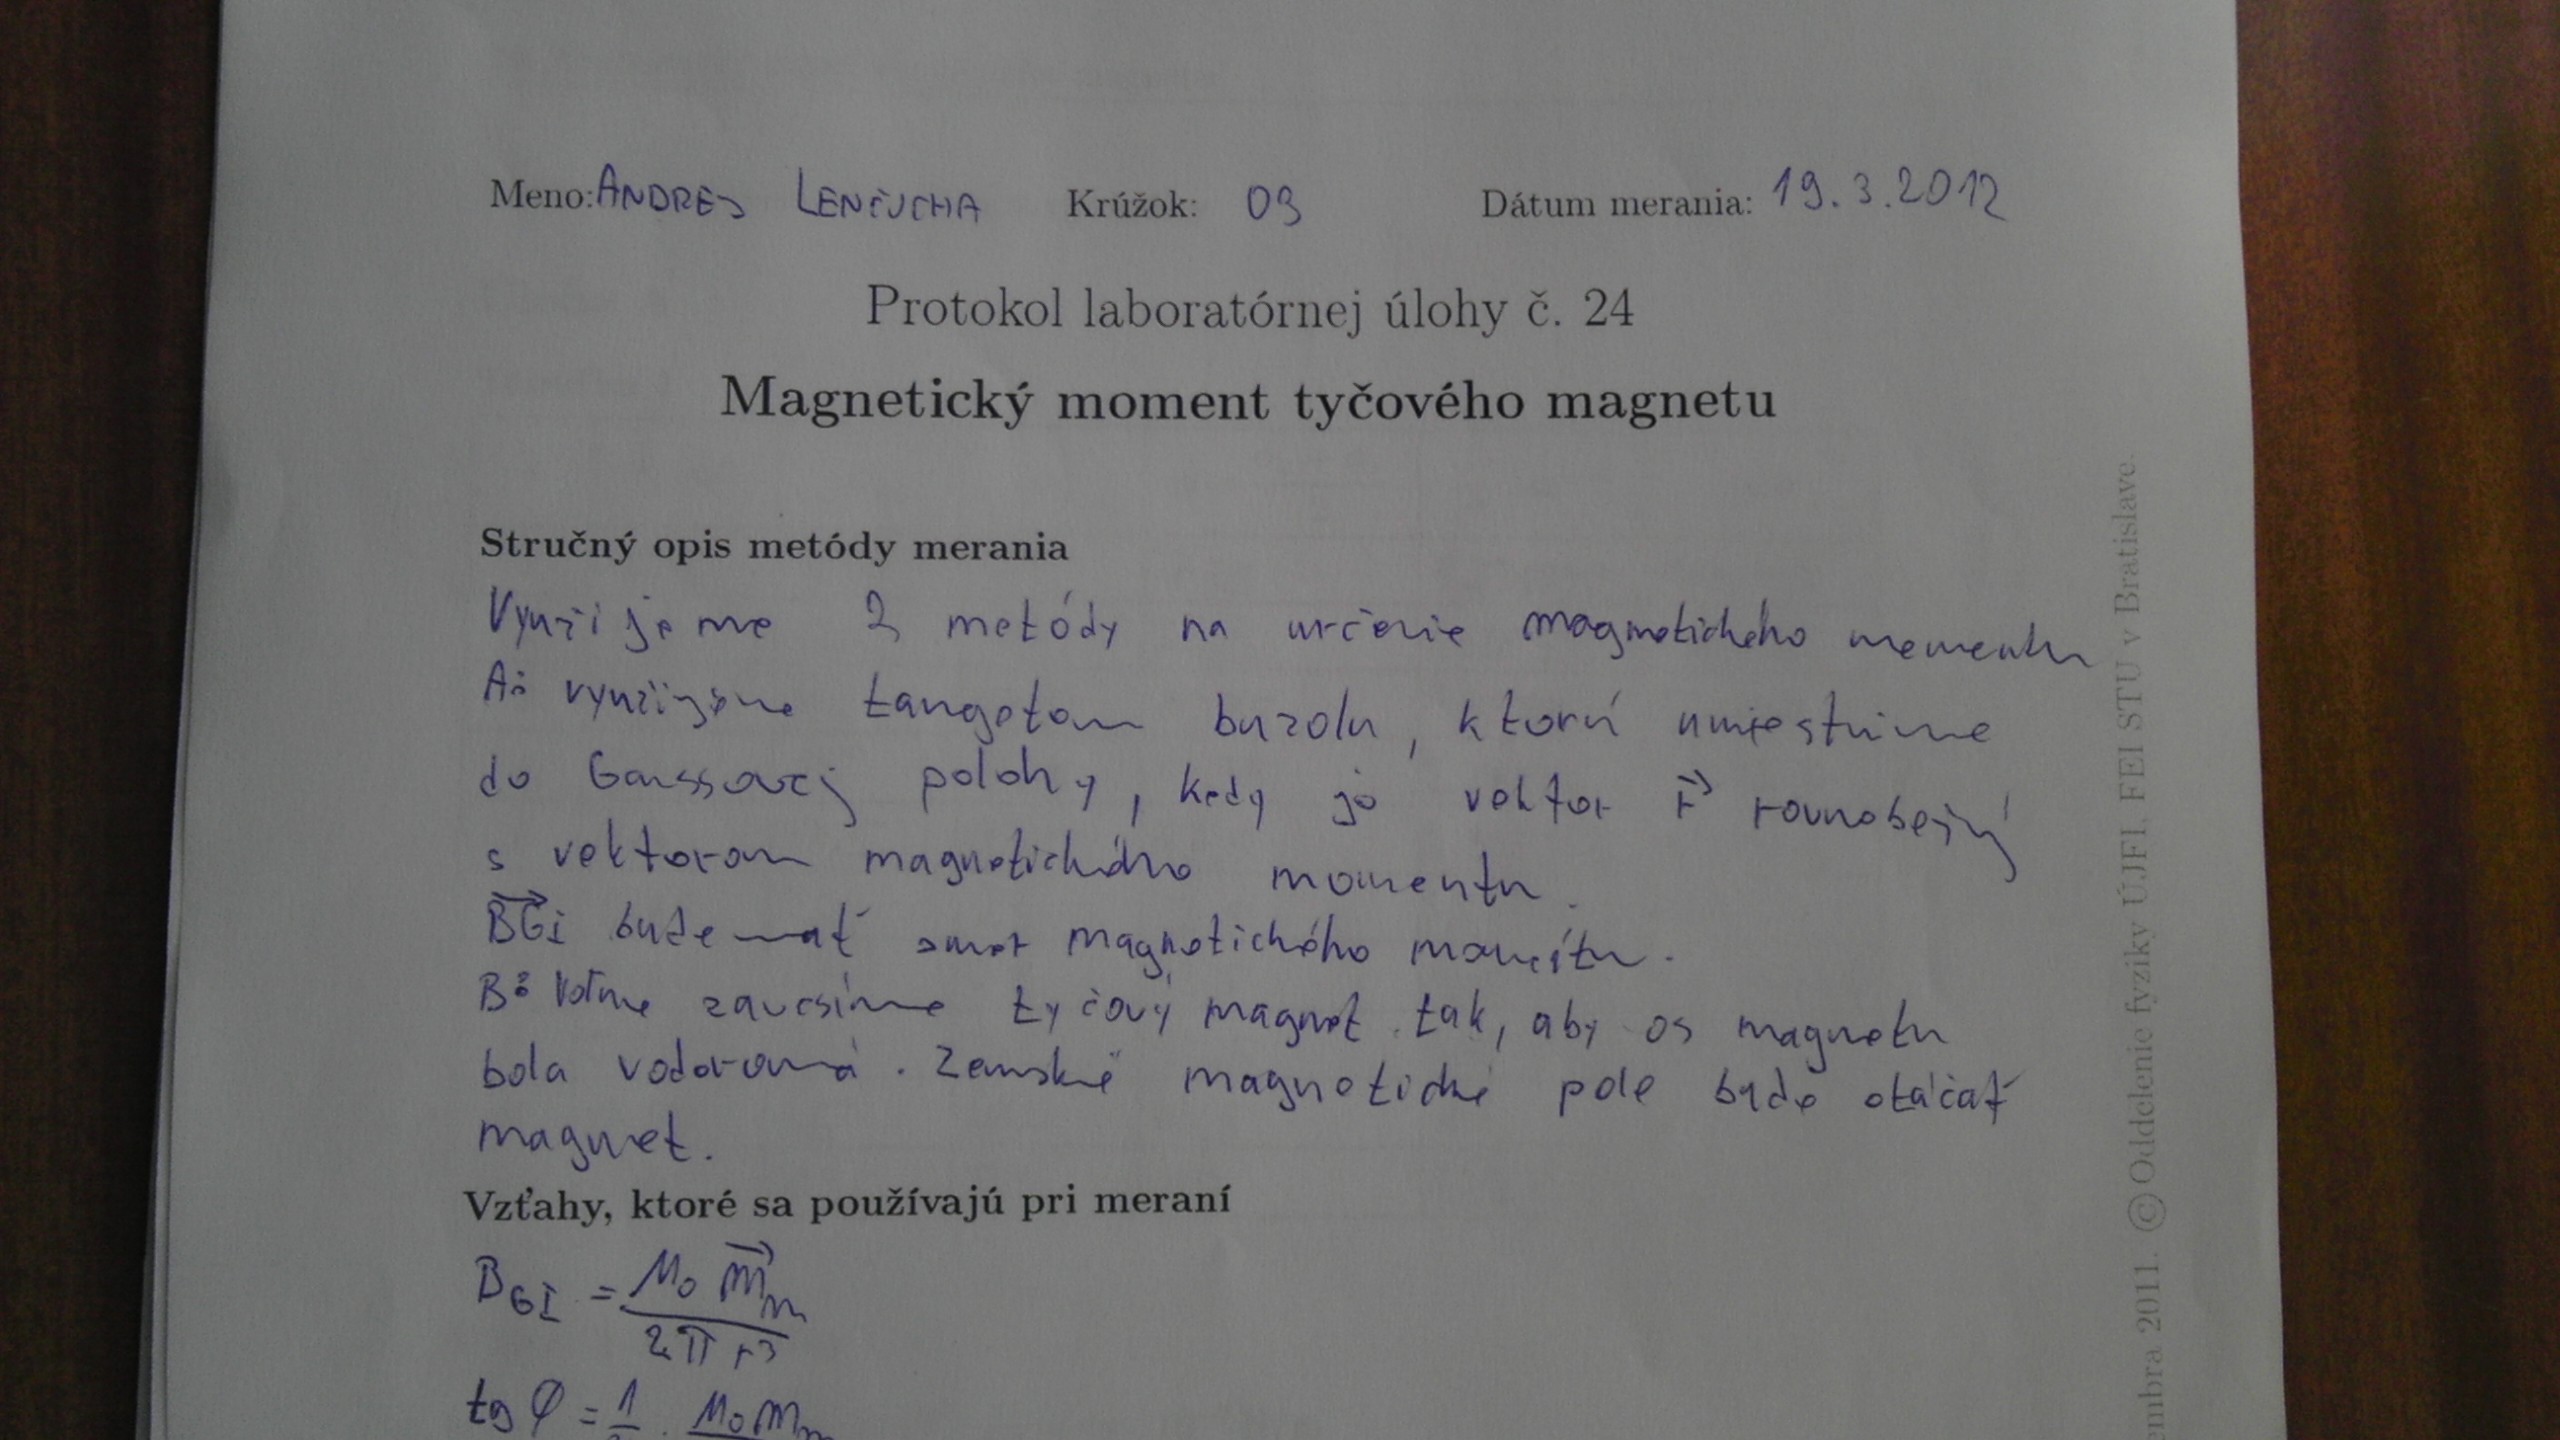 Meno: ANDREJ LENČUCHA Krúžok: 03 Dátum merania: 19.3.2012
Protokol laboratórnej úlohy č. 24
Magnetický moment tyčového magnetu
Stručný opis metódy merania
Využijeme 2 metódy na určenie magnetického momentu
A: využijeme tangetom buzolu, ktorú umiestnime
do Gaussovej polohy, kedy je vektor r⃗ rovnobežný
s vektorom magnetického momentu.
B⃗GI bude mať smer magnetického momentu.
B: Voľne zavesíme tyčový magnet tak, aby os magnetu
bola vodorovná. Zemské magnetické pole bude otáčať
magnet.
Vzťahy, ktoré sa používajú pri meraní
B_GI = μ₀ m⃗_m / 2πr³
tg φ = 1 . μ₀ m_m
embra 2011. © Oddelenie fyziky ÚJFI, FEI STU v Bratislave.